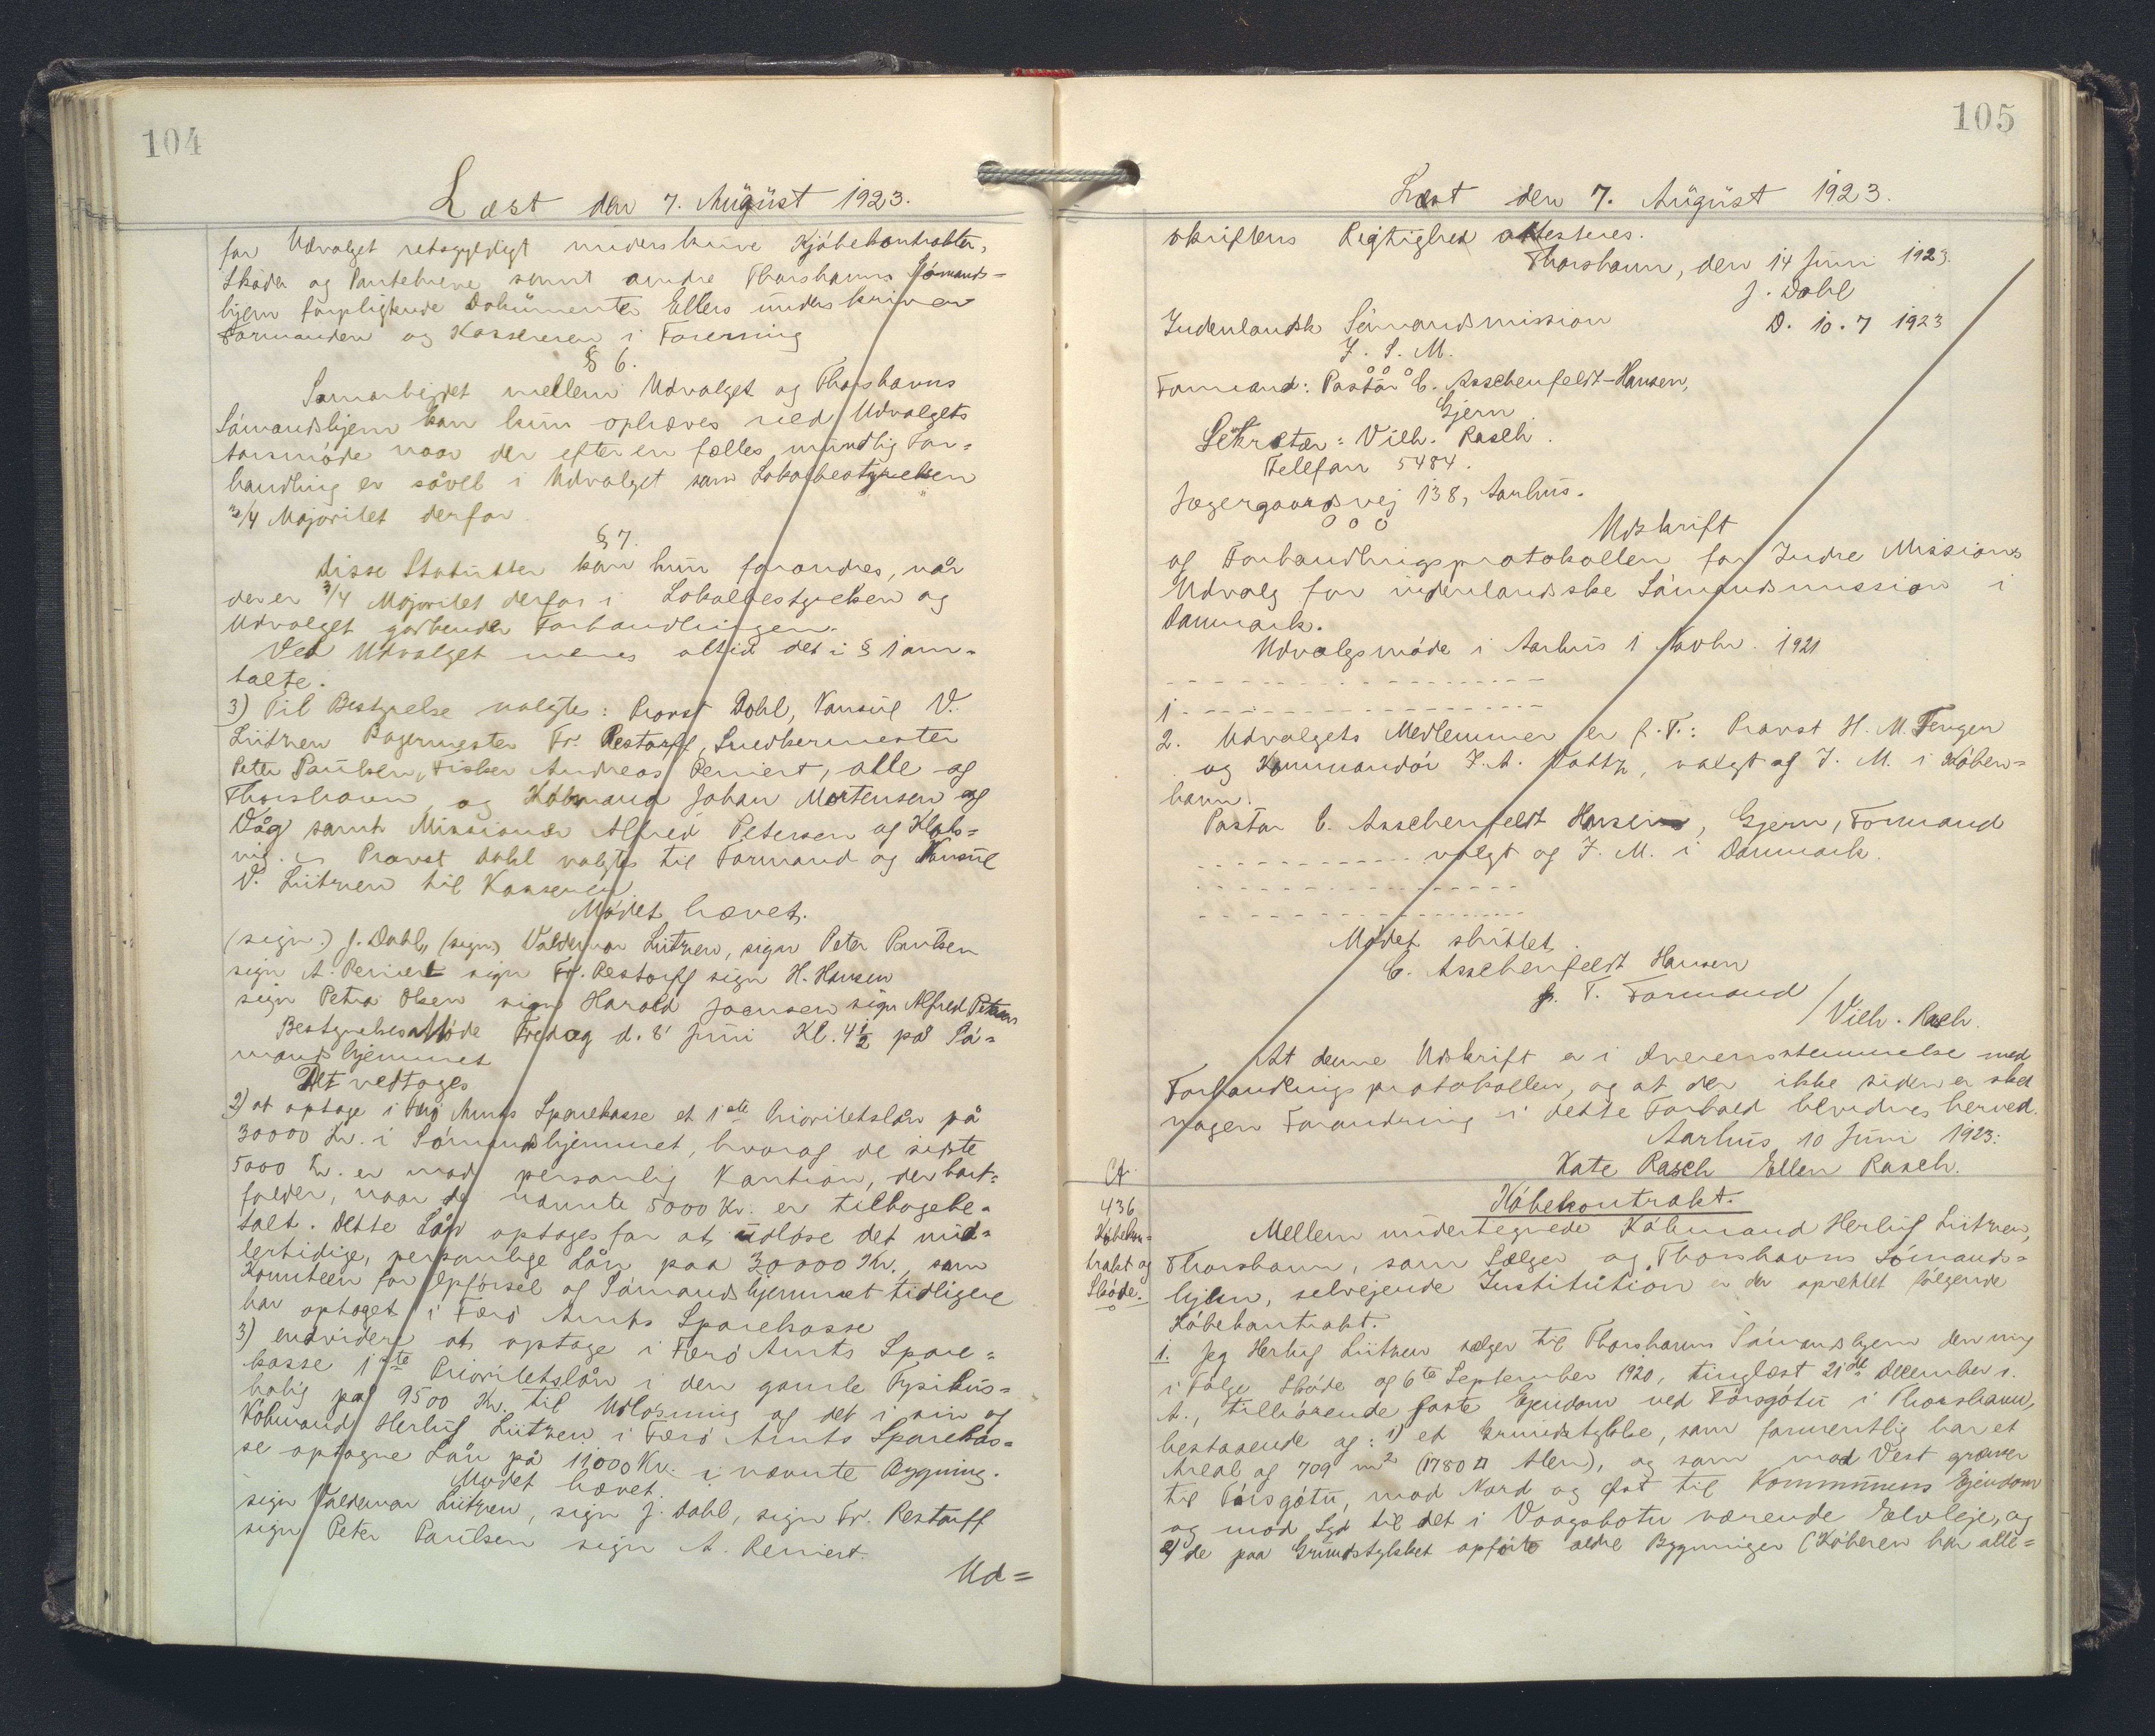 104
Læst den 7. August 1923.
for Udvalget retsgyldigt underskrive Kjøbekontrakter,
Skøder og Pantebreve samt andre Thorshavns Sømands=
hjem forpligtende Dokumenter Ellers underskriver
Formanden og Kassereren i Forening
§ 6.
Samarbejdet mellem Udvalget og Thorshavns
Sømandshjem kan kun ophæves ved Udvalgets
Aarsmøde naar der efter en fælles mundlig For=
handling er såvel i Udvalget som Lokalbestyrelsen
3/4 Majoritet derfor
§ 7.
Disse Statutter kan kun forandres, når
der er 3/4 Majoritet derfor i Lokalbestyrelsen og
Udvalget godkender Forhandlingen.
Ved Udvalget menes altid det i § 1 om=
talte.
3) Til Bestyrelse valgtes: Provst Dahl, Konsul V.
Lützen Bagermester Fr. Restorff, Snedkermester
Peter Paulsen, Fisker Andreas Reniert, alle af
Thorshavn og Købmand Johan Mortensen af
Våg samt Missionær Alfred Petersen af Klaks=
vig. Provst Dahl valgtes til Formand og Konsul
V. Lützen til Kasserer.
Mødet hævet.
(sign.) J. Dahl, (sign) Valdemar Lützen, sign Peter Paulsen
sign A. Reniert sign Fr. Restorff sign H. Hansen
sign Petra Olsen sign Harald Joensen sign Alfred Petersen
Bestyrelsesmøde Fredag d. 8' Juni Kl. 4½ på Sø=
mandshjemmet
Det vedtages
2) at optage i Færø Amts Sparekasse et 1ste Prioritetslån på
30000 Kr. i Sømandshjemmet, hvoraf de sidste
5000 Kr. er mod personlig Kaution, der bort=
falder, naar de nævnte 5000 Kr. er tilbagebe=
talt. Dette Lån optages for at udløse det mid=
lertidige, personlige Lån paa 30000 Kr., som
Komiteen for Opførsel af Sømandshjemmet tidligere
har optaget i Færø Amts Sparekasse
3) endvidere at optage i Færø Amts Spare=
kasse 1ste Prioritetslån i den gamle Fysikus=
bolig på 9500 Kr. til Udløsning af det i sin af
Købmand Herluf Lützen i Færø Amts Sparekas=
se optagne Lån på 11000 Kr. i nævnte Bygning.
Mødet hævet.
sign Valdemar Lützen, sign J. Dahl, sign Fr. Restorff
sign Peter Paulsen sign A. Reniert.
Ud=
105
Læst den 7. August 1923.
skriftens Rigtighed attesteres.
Thorshavn, den 14 Juni 1923.
J. Dahl
Indenlandsk Sømandsmission D. 10.7 1923
I. S. M.
Formand: Pastor C. Asschenfeldt-Hansen,
Gjern
Sekretær: Vilh. Rasch.
Telefon 5484.
Jægergaardsvej 138, Aarhus.
Udskrift
af Forhandlingsprotokollen for Indre Missions
Udvalg for indenlandske Sømandsmission i
Danmark.
Udvalgsmøde i Aarhus 1 Novbr. 1921
1
2. Udvalgets Medlemmer er f. T.: Provst H. M. Fengen
og Kommandør F. A. , valgt af I. M. i Køben=
havn.
Pastor C. Asschenfeldt Hansen, Gjern, Formand
valgt af I. M. i Danmark.
Mødet sluttet.
C. Asschenfeldt Hansen
f. T. Formand
/ Vilh. Rasch.
At denne Udskrift er i Overensstemmelse med
Forhandlingsprotokollen, og at der ikke siden er sket
nogen Forandring i dette Forhold bevidnes herved.
Aarhus 10 Juni 1923:
Kate Rasch Ellen Rasch.
436
Købekon=
trakt og
Skøde.
Købekontrakt.
Mellem undertegnede Købmand Herluf Lützen,
Thorshavn, som Sælger og Thorshavns Sømands=
hjem, selvejende Institution er der oprettet følgende
Købekontrakt.
1. Jeg Herluf Lützen sælger til Thorshavns Sømandshjem den mig
i Følge Skøde af 6te September 1920, tinglæst 21de December s.
A., tilhørende faste Ejendom ved Tórsgøtu i Thorshavn,
bestaaende af: 1) et Grundstykke, som formentlig har et
Areal af 709 m² (1780 □ Alen), og som mod Vest grænser
til Tórsgøtu, mod Nord og Øst til Kommunens Ejendom
og mod Syd til det i Vaagsbotn værende Elvleje, og
2) de paa Grundstykket opførte ældre Bygninger (Køberen har alle=